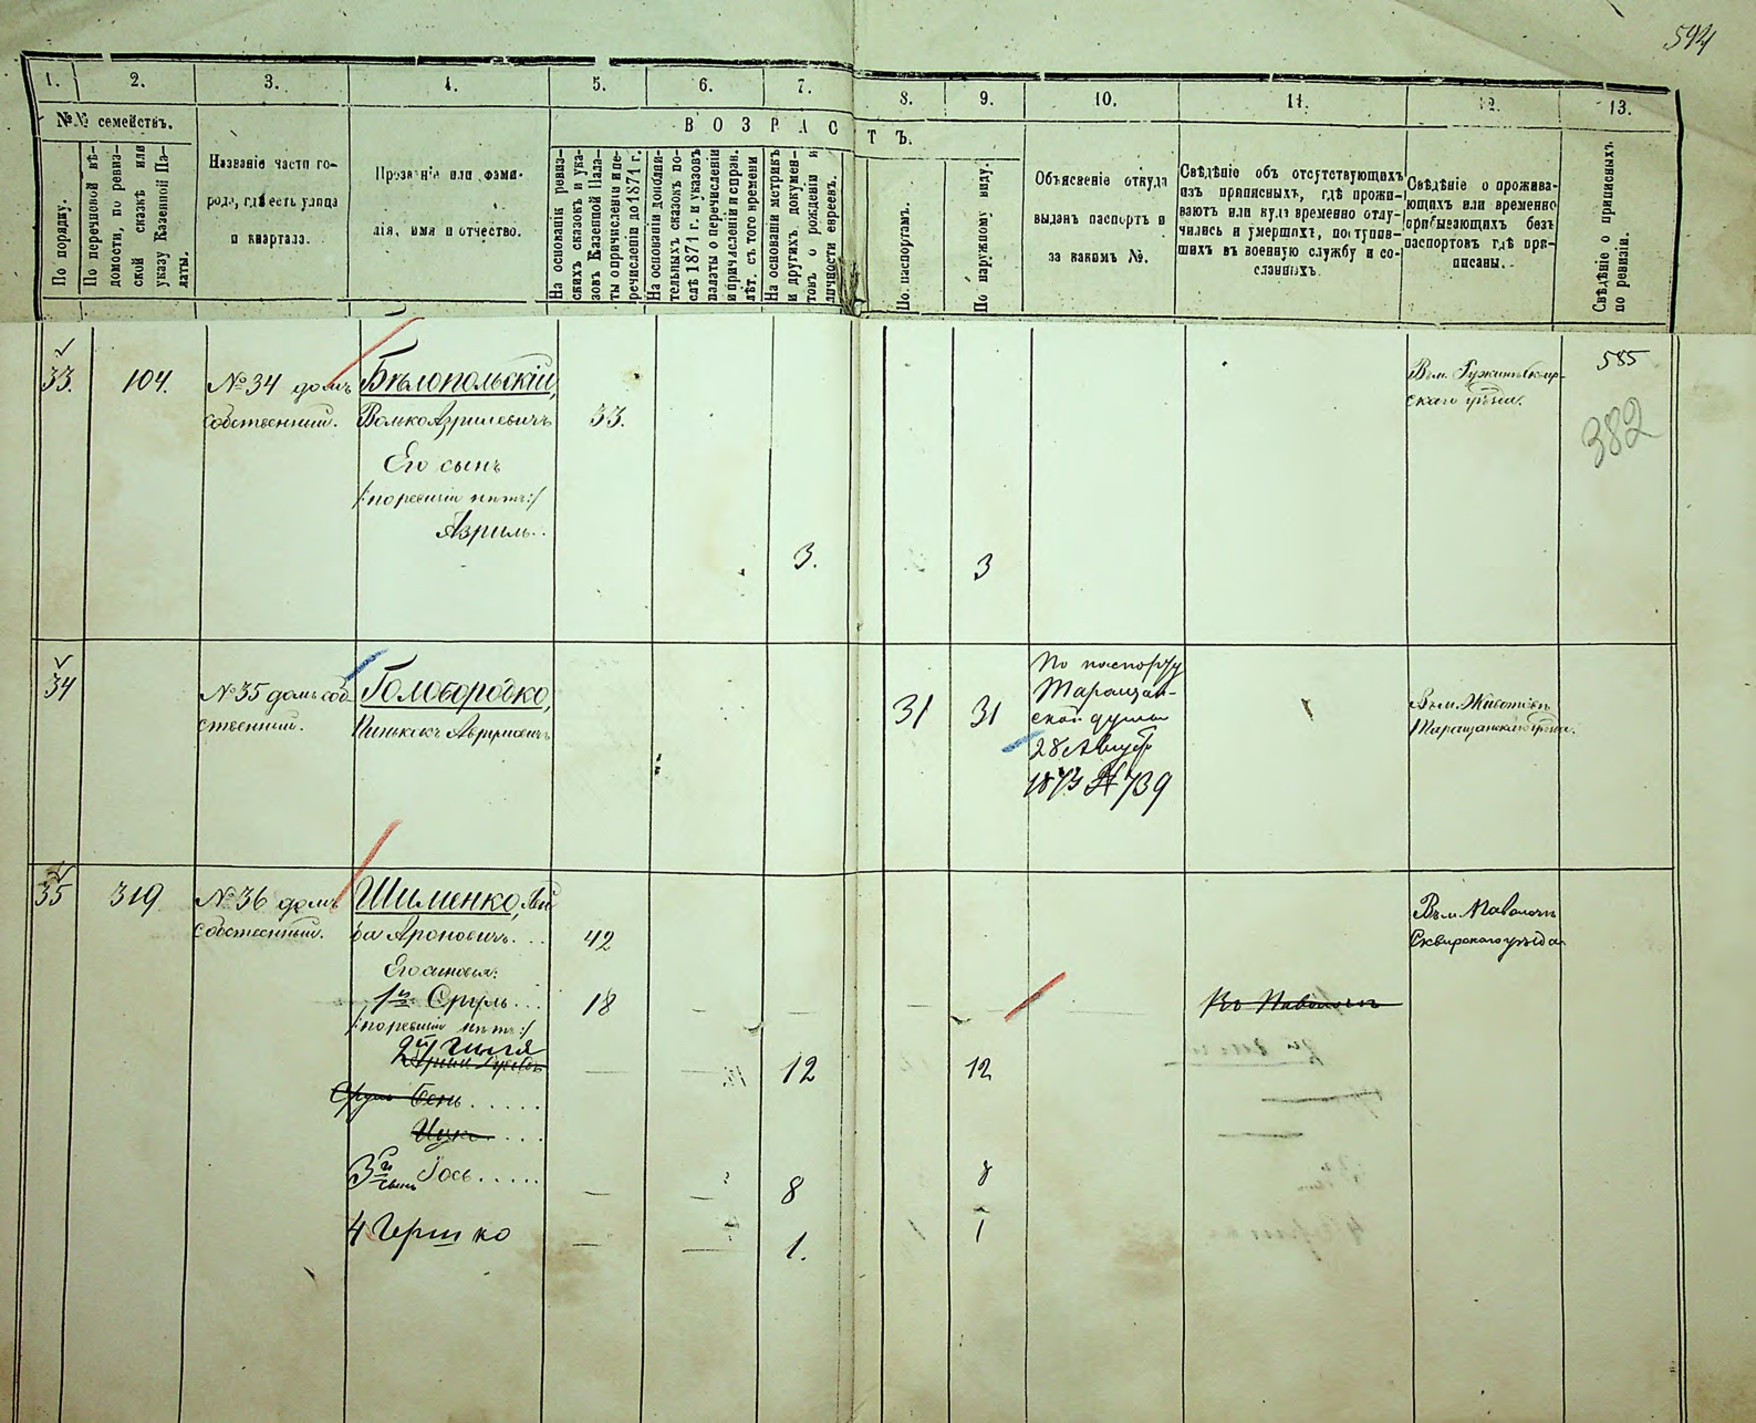 594
1. 2. 3. 4. 5. 6. 7. 8. 9. 10. 11. 12. 13.
№№ семействъ.
В О З Р А С Т Ъ.
По порядку.
По перечневой вѣ-
домости, по ревиз-
ской сказкѣ или
указу Казенной Па-
латы.
Названіе части го-
рода, гдѣ есть улица
и квартала.
Прозваніе или фами-
лія, имя и отчество.
На основаніи ревиз-
скихъ сказокъ и ука-
зовъ Казенной Пала-
ты о причисленіи и пе-
речисленіи до 1871 г.
На основаніи дополни-
тельныхъ сказокъ по-
слѣ 1871 г. и указовъ
палаты о перечисленіи
и причисленіи и справ.
лѣт. съ того времени
На основаніи метрикъ
и другихъ докумен-
товъ о рожденіи и
личности евреевъ.
По паспортамъ.
По наружному виду.
Объясненіе откуда
выданъ паспортъ и
за какимъ №.
Свѣдѣніе объ отсутствующихъ
изъ приписныхъ, гдѣ прожи-
ваютъ или куда временно отлу-
чились и умершихъ, поступив-
шихъ въ военную службу и со-
сланныхъ
Свѣдѣніе о прожива-
ющихъ или временно
прибывающихъ безъ
паспортовъ гдѣ при-
писаны.
Свѣдѣніе о приписныхъ
по ревизіи.
33. 104. № 34 домъ Бѣлопольскій, 585
собственный. Волько Азрилевичъ 33.
Въ м. Ружинѣ Сквир-
скаго уѣзда.
382
Его сынъ
/:по ревизіи нѣтъ:/
Азриль..
3. 3
34 № 35 домъ соб- Голобородко, 31 31
ственный.
По паспорту
Таращан-
ской думы
28 Август
1873 № 739
Въ м. Животовъ
Таращанскаго уѣзда.
35 319 № 36 домъ Шименко, Лей
собственный. ба Ароновичъ... 42
Въ м. Паволочь
Сквирскаго уѣзда
Его сыновья:
1й Сруль... 18 — — — Въ Паволочѣ
/:по ревизіи нѣтъ:/
2й — — 12 12
Бень.....
Ицко....
3й сынъ Іось..... — — 8 8
4 Гершко — — 1. 1